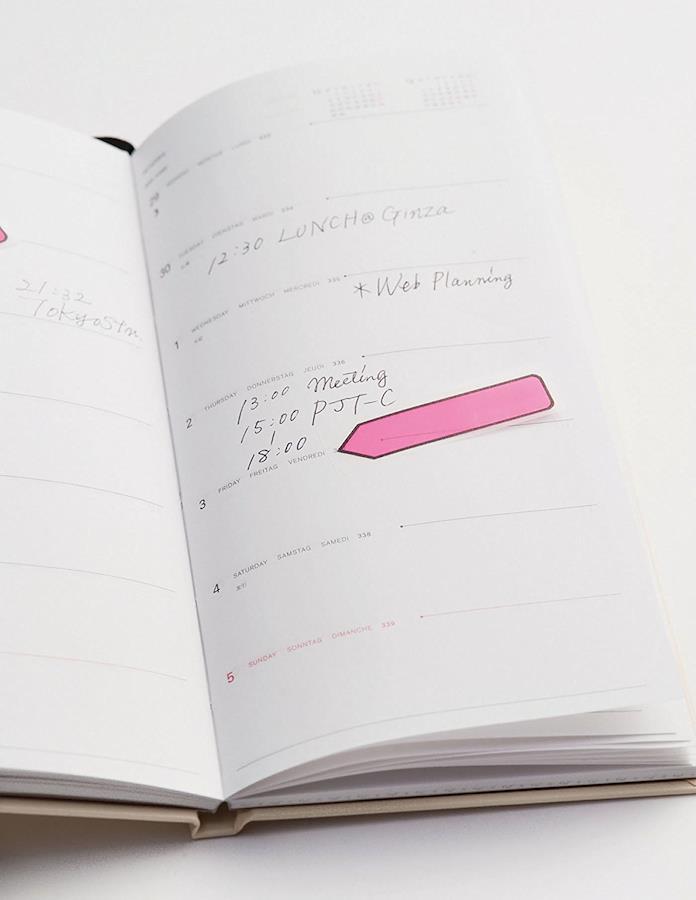 21:32
TokyoStn.
29
MONDAY MONTAG LUNDI 333
30
TUESDAY DIENSTAG MARDI 334
12:30 LUNCH@Ginza
1
WEDNESDAY MITTWOCH MERCREDI 335
*Web Planning
2
THURSDAY DONNERSTAG JEUDI 336
13:00 Meeting
15:00 PJT-C
18:00
3
FRIDAY FREITAG VENDREDI
4
SATURDAY SAMSTAG SAMEDI 338
5
SUNDAY SONNTAG DIMANCHE 339